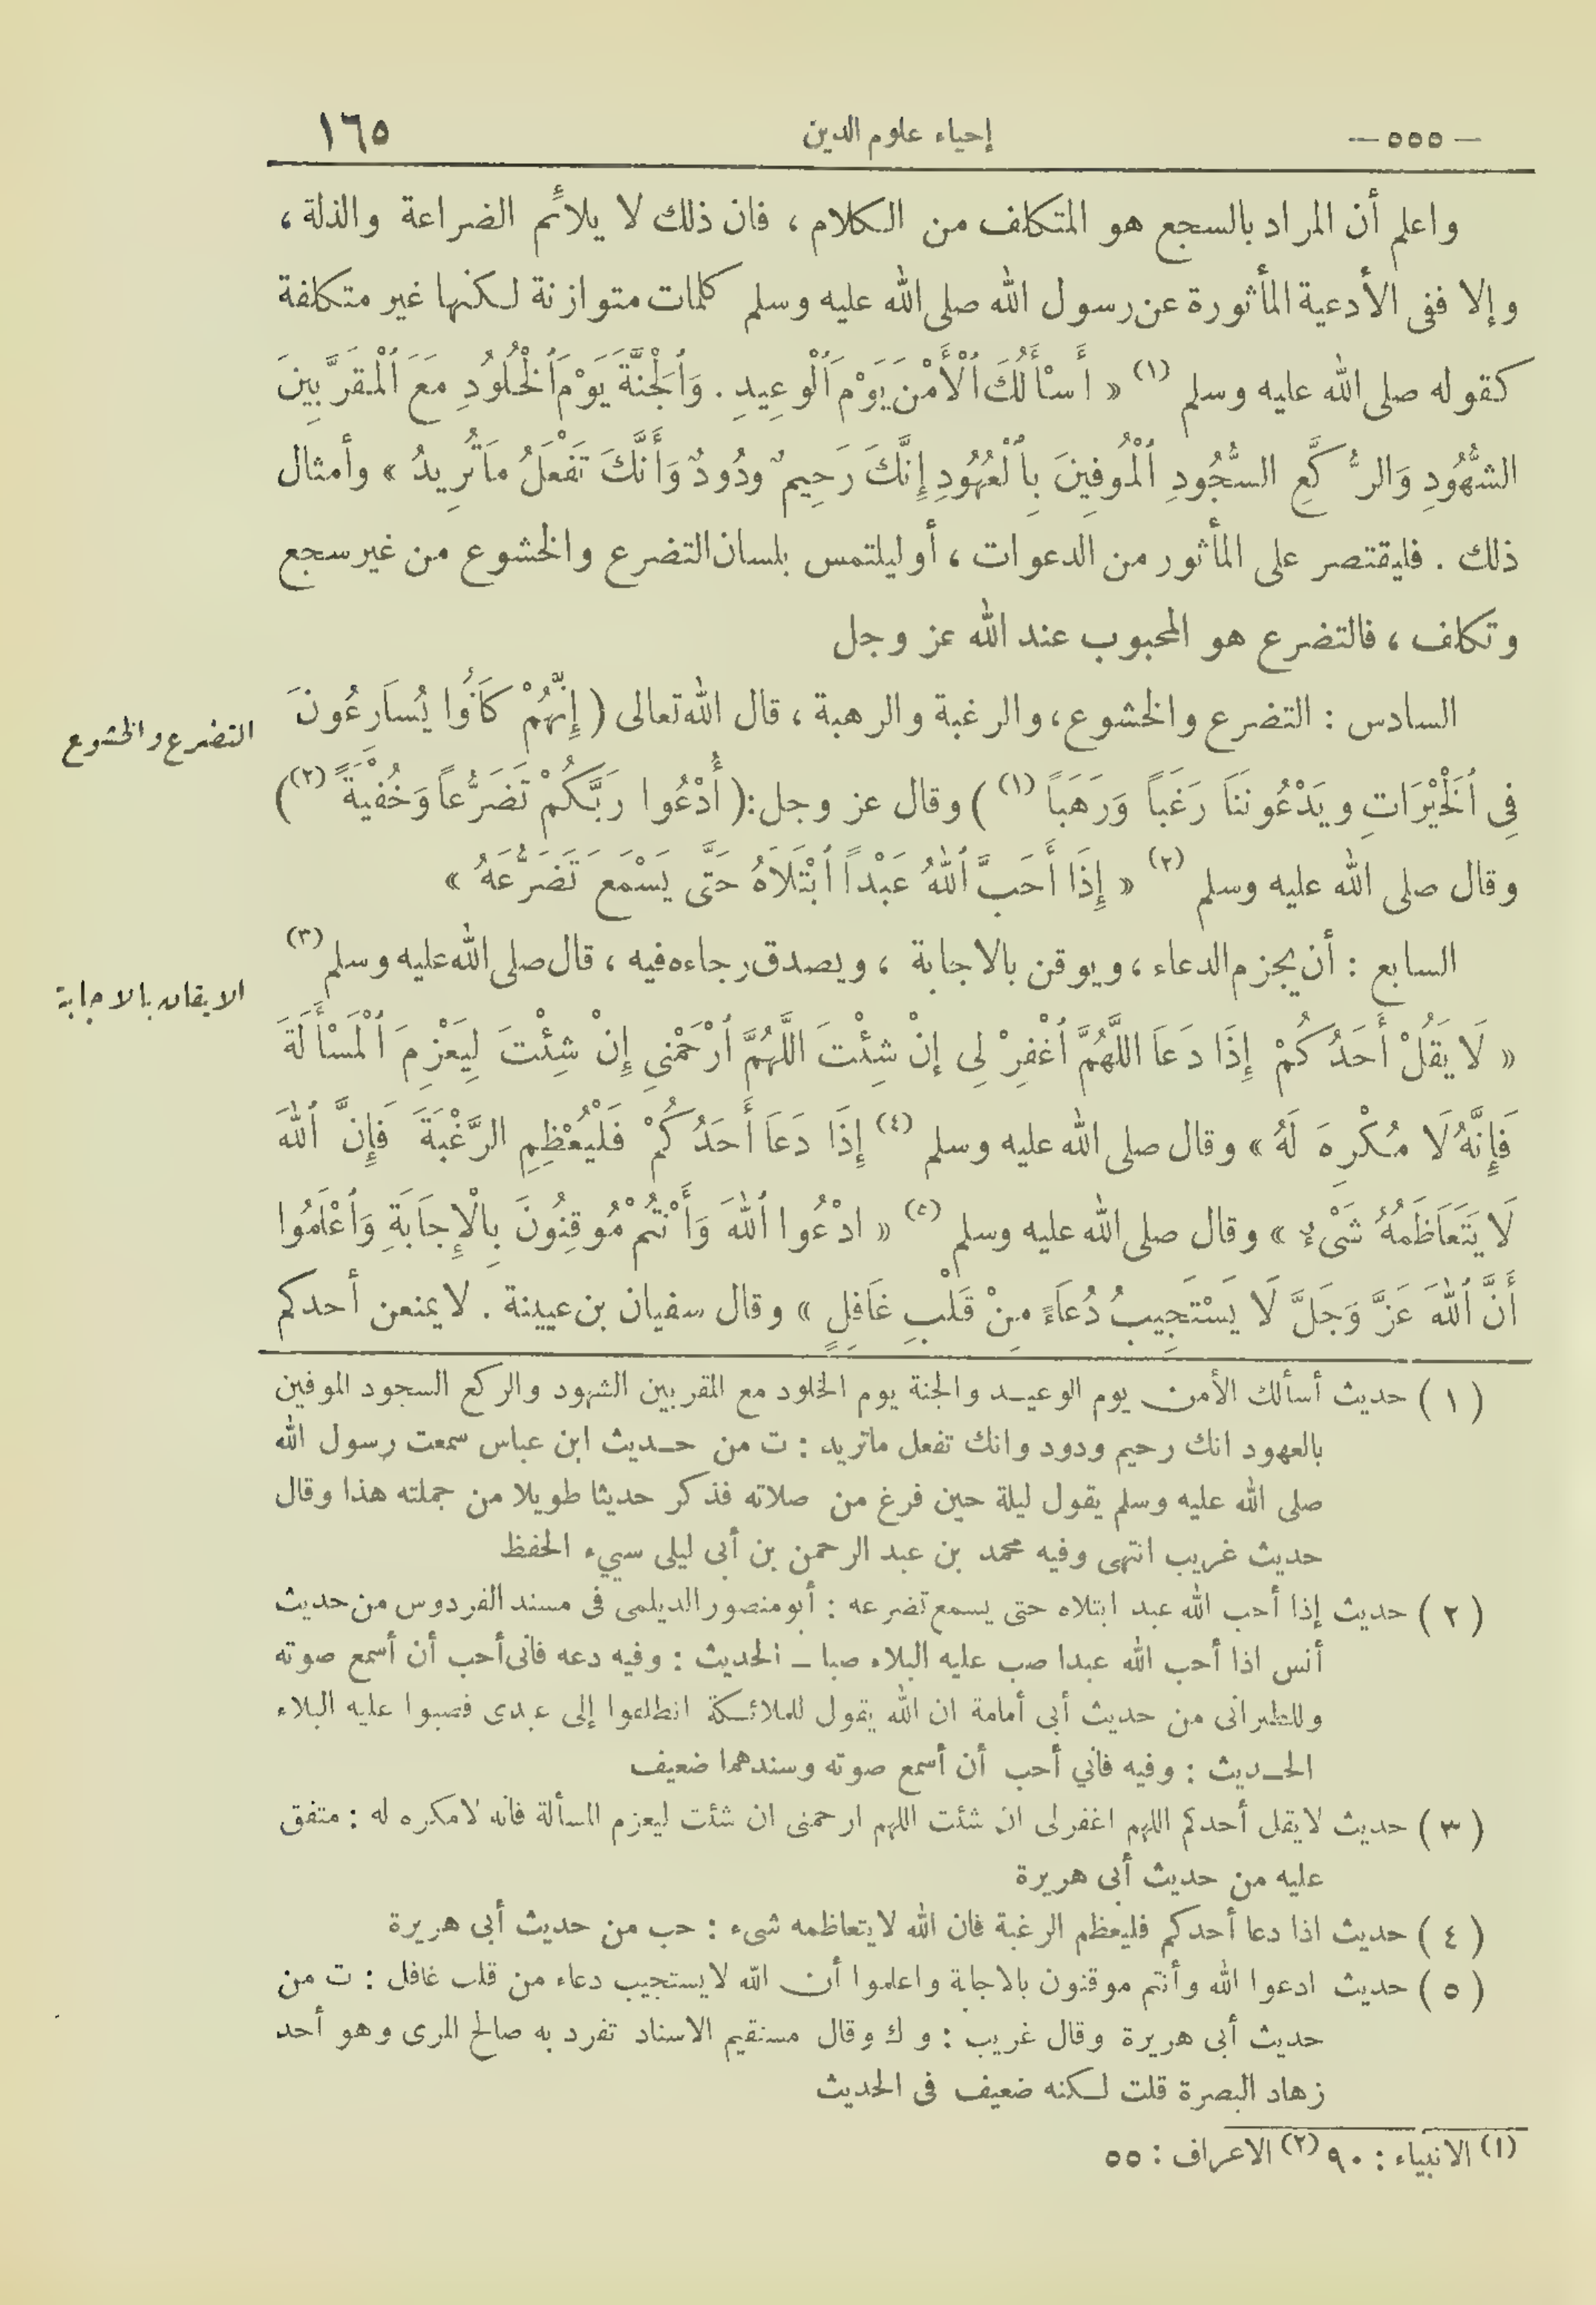 — ٥٥٥ — إحياء علوم الدين ١٦٥
واعلم أن المراد بالسجع هو المتكلف من الكلام ، فان ذلك لا يلائم الضراعة والذلة ،
وإلا ففى الأدعية المأثورة عن رسول الله صلى الله عليه وسلم كلمات متوازنة لكنها غير متكلفة
كقوله صلى الله عليه وسلم (١) « أَسْأَلُكَ ٱلْأَمْنَ يَوْمَ ٱلْوَعِيدِ . وَٱلْجَنَّةَ يَوْمَ ٱلْخُلُودِ مَعَ ٱلْمُقَرَّبِينَ
الشُّهُودِ وَالرُّكَّعِ السُّجُودِ ٱلْمُوفِينَ بِٱلْعُهُودِ إِنَّكَ رَحِيمٌ وَدُودٌ وَأَنَّكَ تَفْعَلُ مَا تُرِيدُ » وأمثال
ذلك . فليقتصر على المأثور من الدعوات ، أو ليلتمس بلسان التضرع والخشوع من غير سجع
وتكلف ، فالتضرع هو المحبوب عند الله عز وجل
السادس : التضرع والخشوع ، والرغبة والرهبة ، قال الله تعالى ( إِنَّهُمْ كَانُوا يُسَارِعُونَ
التضرع والخشوع
فِى ٱلْخَيْرَاتِ وَيَدْعُونَنَا رَغَبًا وَرَهَبًا (١) ) وقال عز وجل : ( أُدْعُوا رَبَّكُمْ تَضَرُّعًا وَخُفْيَةً (٢) )
وقال صلى الله عليه وسلم (٢) « إِذَا أَحَبَّ ٱللهُ عَبْدًا ٱبْتَلَاهُ حَتَّى يَسْمَعَ تَضَرُّعَهُ »
السابع : أن يجزم الدعاء ، ويوقن بالاجابة ، ويصدق رجاءه فيه ، قال صلى الله عليه وسلم (٣)
الايقان بالاجابة
« لَا يَقُلْ أَحَدُكُمْ إِذَا دَعَا اللَّهُمَّ ٱغْفِرْ لِى إِنْ شِئْتَ اللَّهُمَّ ٱرْحَمْنِى إِنْ شِئْتَ لِيَعْزِمَ ٱلْمَسْأَلَةَ
فَإِنَّهُ لَا مُكْرِهَ لَهُ » وقال صلى الله عليه وسلم (٤) إِذَا دَعَا أَحَدُكُمْ فَلْيُعْظِمِ الرَّغْبَةَ فَإِنَّ ٱللهَ
لَا يَتَعَاظَمُهُ شَىْءٌ » وقال صلى الله عليه وسلم (٥) « ادْعُوا ٱللهَ وَأَنْتُمْ مُوقِنُونَ بِالْإِجَابَةِ وَٱعْلَمُوا
أَنَّ ٱللهَ عَزَّ وَجَلَّ لَا يَسْتَجِيبُ دُعَاءً مِنْ قَلْبٍ غَافِلٍ » وقال سفيان بن عيينة . لا يمنعن أحدكم
( ١ ) حديث أسألك الأمن يوم الوعيد والجنة يوم الخلود مع المقربين الشهود والركع السجود الموفين
بالعهود انك رحيم ودود وانك تفعل ماتريد : ت من حديث ابن عباس سمعت رسول الله
صلى الله عليه وسلم يقول ليلة حين فرغ من صلاته فذكر حديثا طويلا من جملته هذا وقال
حديث غريب انتهى وفيه محمد بن عبد الرحمن بن أبى ليلى سيء الحفظ
( ٢ ) حديث إذا أحب الله عبد ابتلاه حتى يسمع تضرعه : أبو منصور الديلمى فى مسند الفردوس من حديث
أنس اذا أحب الله عبدا صب عليه البلاء صبا ــ الحديث : وفيه دعه فانى أحب أن أسمع صوته
وللطبرانى من حديث أبى أمامة ان الله يقول للملائكة انطلقوا إلى عبدى فصبوا عليه البلاء
الحديث : وفيه فاني أحب أن أسمع صوته وسندهما ضعيف
( ٣ ) حديث لا يقل أحدكم اللهم اغفر لى ان شئت اللهم ارحمنى ان شئت ليعزم المسألة فانه لا مكره له : متفق
عليه من حديث أبى هريرة
( ٤ ) حديث اذا دعا أحدكم فليعظم الرغبة فان الله لا يتعاظمه شىء : حب من حديث أبى هريرة
( ٥ ) حديث ادعوا الله وأنتم موقنون بالاجابة واعلموا أن الله لا يستجيب دعاء من قلب غافل : ت من
حديث أبى هريرة وقال غريب : و ك وقال مستقيم الاسناد تفرد به صالح المرى وهو أحد
زهاد البصرة قلت لكنه ضعيف فى الحديث
(١) الانبياء : ٩٠ (٢) الاعراف : ٥٥